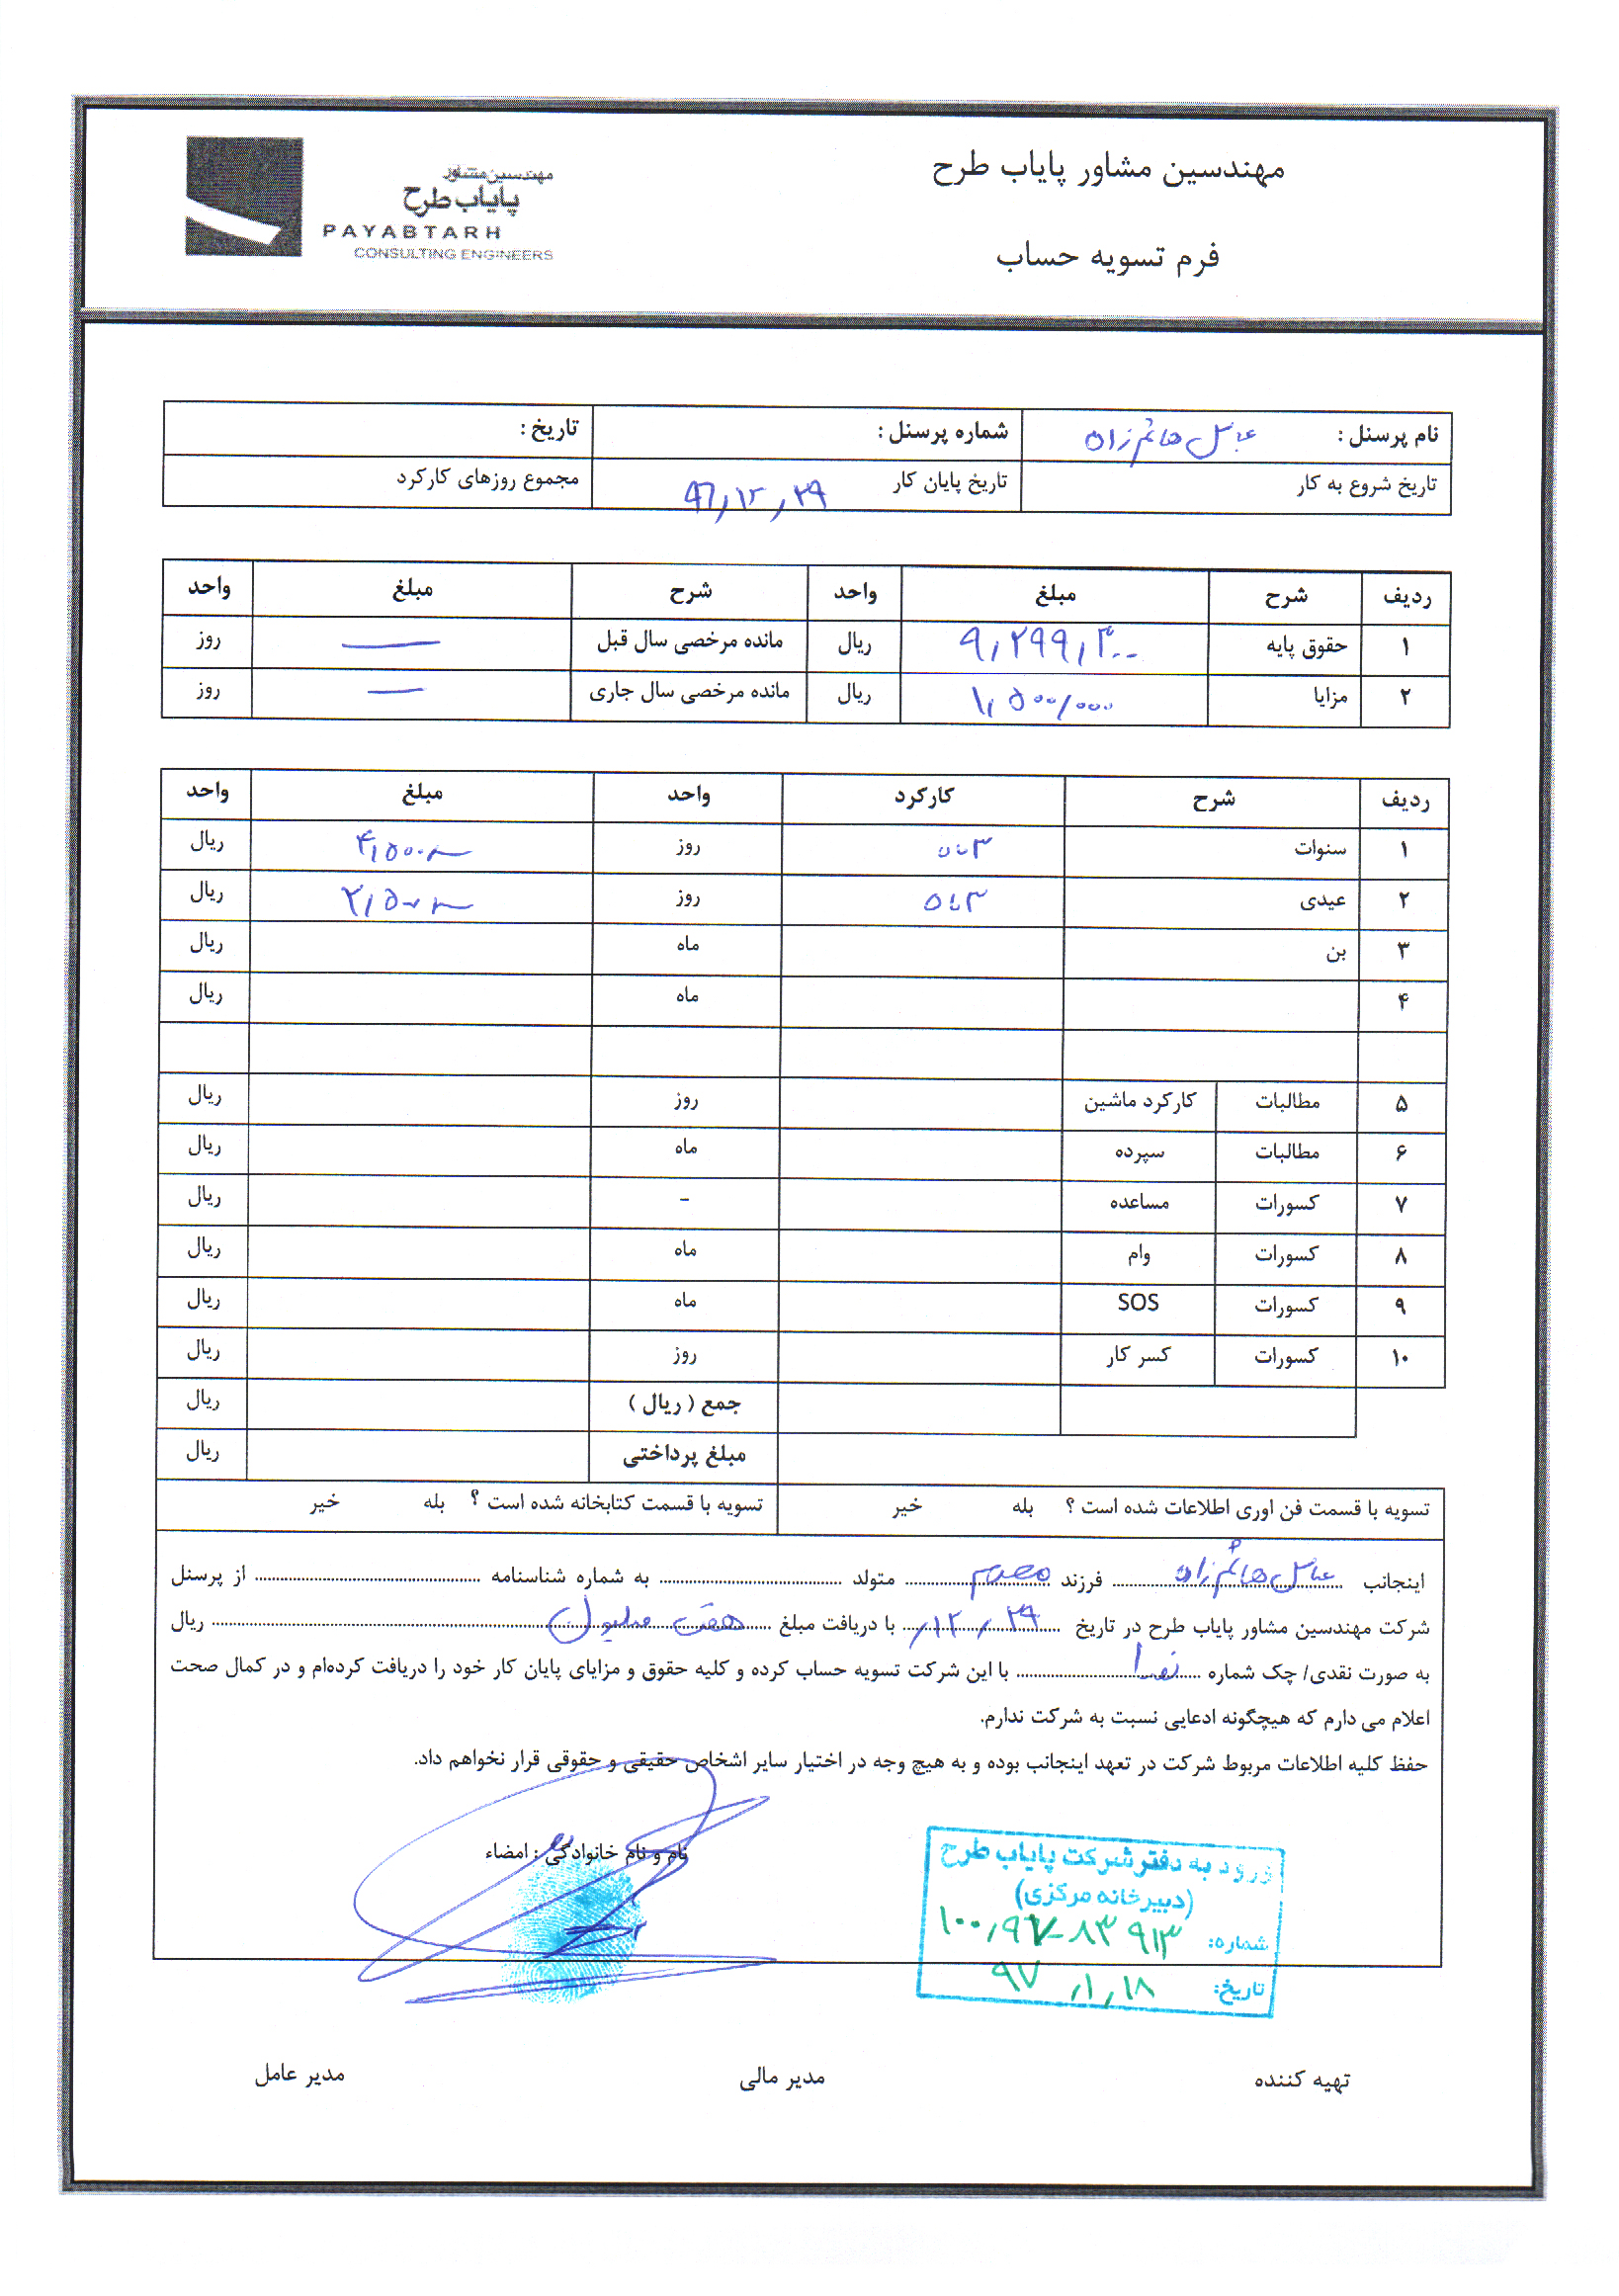 مهندسین مشاور پایاب طرح
فرم تسویه حساب
مهندسین مشاور
پایاب طرح
PAYABTARH
CONSULTING ENGINEERS
نام پرسنل : عباس هاشم زاده شماره پرسنل : تاریخ :
تاریخ شروع به کار تاریخ پایان کار ۹۶/۱۲/۲۹ مجموع روزهای کارکرد
ردیف شرح مبلغ واحد شرح مبلغ واحد
۱ حقوق پایه ۹,۲۹۹,۳۰۰ ریال مانده مرخصی سال قبل — روز
۲ مزایا ۱,۵۰۰,۰۰۰ ریال مانده مرخصی سال جاری — روز
ردیف شرح کارکرد واحد مبلغ واحد
۱ سنوات ۳ ماه روز ۴,۵۰۰,۰۰۰ ریال
۲ عیدی ۳ ماه روز ۲,۵۰۰,۰۰۰ ریال
۳ بن ماه ریال
۴ ماه ریال
۵ مطالبات کارکرد ماشین روز ریال
۶ مطالبات سپرده ماه ریال
۷ کسورات مساعده - ریال
۸ کسورات وام ماه ریال
۹ کسورات SOS ماه ریال
۱۰ کسورات کسر کار روز ریال
جمع ( ریال ) ریال
مبلغ پرداختی ریال
تسویه با قسمت فن اوری اطلاعات شده است ؟ بله خیر تسویه با قسمت کتابخانه شده است ؟ بله خیر
اینجانب عباس هاشم زاده فرزند متولد به شماره شناسنامه از پرسنل
شرکت مهندسین مشاور پایاب طرح در تاریخ ۱۲/۲۹/ با دریافت مبلغ هفت میلیون ریال
به صورت نقدی/ چک شماره نقدا با این شرکت تسویه حساب کرده و کلیه حقوق و مزایای پایان کار خود را دریافت کرده‌ام و در کمال صحت
اعلام می دارم که هیچگونه ادعایی نسبت به شرکت ندارم.
حفظ کلیه اطلاعات مربوط شرکت در تعهد اینجانب بوده و به هیچ وجه در اختیار سایر اشخاص حقیقی و حقوقی قرار نخواهم داد.
نام و نام خانوادگی : امضاء
ورود به دفتر شرکت پایاب طرح
(دبیرخانه مرکزی)
شماره: ۱۰۰,۹۷-۸۳۹۱۳
تاریخ: ۹۷/۱/۱۸
تهیه کننده مدیر مالی مدیر عامل